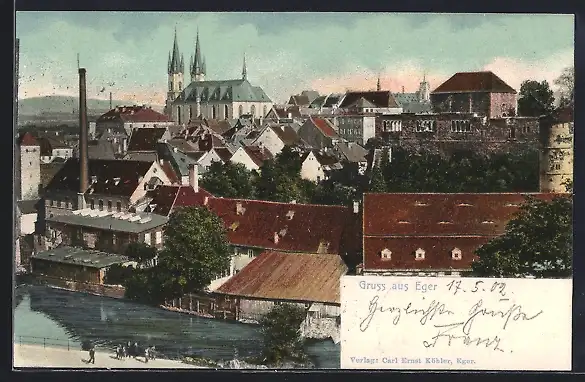 Gruss aus Eger 17.5.02
Herzlichste Grüsse
Franz
Verlag: Carl Ernst Köhler, Eger.